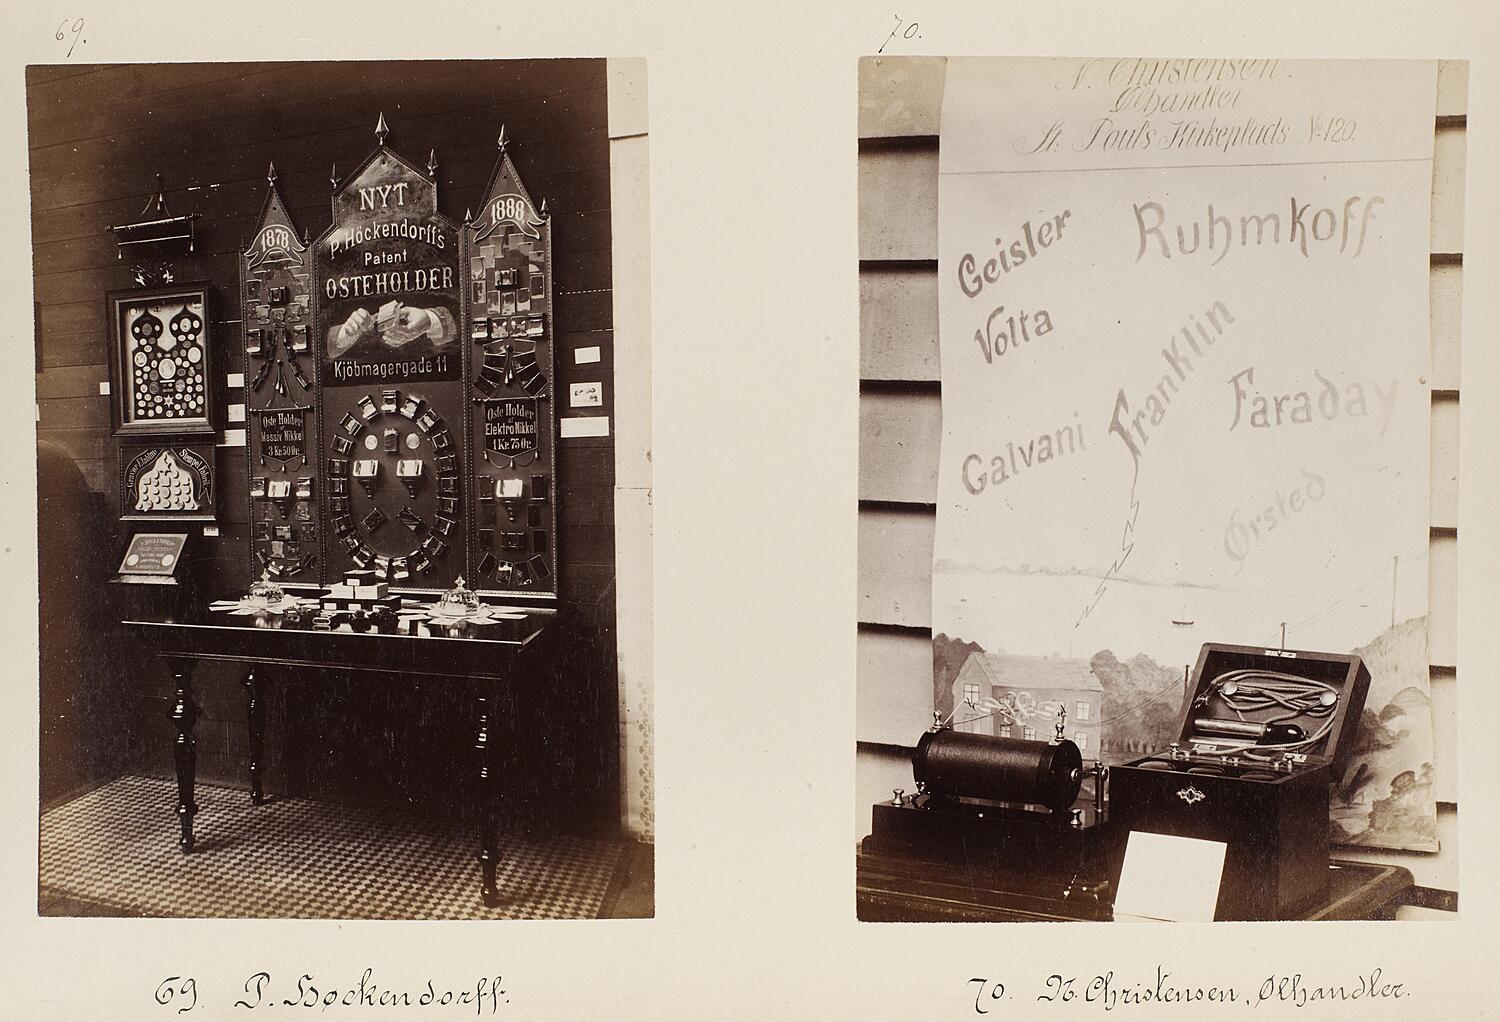 69.
70.
NYT
P. Höckendorff's
Patent
OSTEHOLDER
Kjöbmagergade 11
1878
1888
Oste Holder
af
Massiv Nikkel
3 Kr. 50 Ør.
Oste Holder
af
Elektro Nikkel
1 Kr. 75 Ør.
Stempel Fabrik
P. HÖCKENDORFF
N. Christensen.
Ølhandler
St. Pouls Kirkeplads No 120.
Geisler
Ruhmkoff
Volta
Franklin
Faraday
Galvani
Ørsted
69. P. Høckendorff.
70. N. Christensen, Ølhandler.